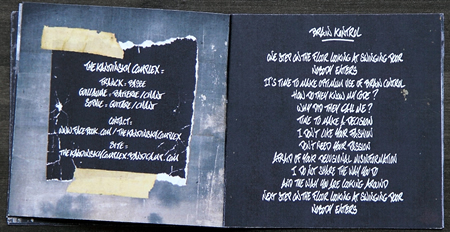 THE KANDINSKY COMPLEX :
FRANCK : BASSE
GUILLAUME : BATTERIE / CHANT
STONE : GUITARE / CHANT
CONTACT :
WWW.FACEBOOK.COM / THEKANDINSKYCOMPLEX
SITE :
THEKANDINSKYCOMPLEX.BANDCAMP.COM
BRAIN KONTROL
ONE STEP ON THE FLOOR LOOKING AT SWINGING DOOR
NOBODY ENTERS
IT'S TIME TO MAKE OPTIMUM USE OF BRAIN CONTROL
HOW DO THEY KNOW MY CODE ?
WHY DID THEY CALL ME ?
TIME TO MAKE A DECISION
I DON'T LIKE YOUR FASHION
DON'T NEED YOUR PASSION
AFRAID OF YOUR DELUSIONAL MISINFORMATION
I DO NOT SHARE THE WAY YOU DO
AND THE WAY YOU ARE LOOKING AROUND
NEXT STEP ON THE FLOOR LOOKING AT SWINGING DOOR
NOBODY ENTERS